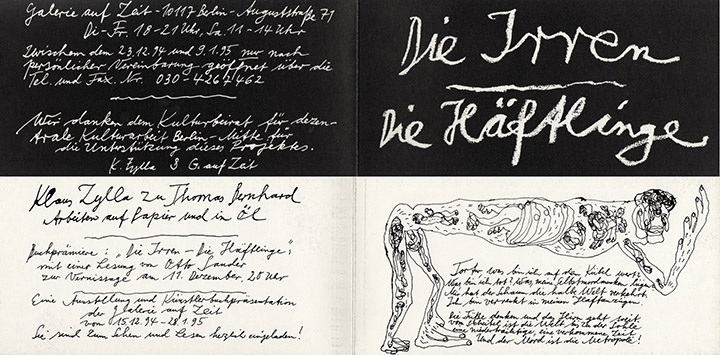 Galerie auf Zeit - 10117 Berlin - Auguststraße 71
Di-Fr. 18-21 Uhr, Sa. 11-14 Uhr
Zwischen dem 23.12.94 und 9.1.95 nur nach
persönlicher Vereinbarung geöffnet über die
Tel. und Fax. Nr. 030-4267462
Wir danken dem Kulturbeirat für dezen-
trale Kulturarbeit Berlin-Mitte für
die Unterstützung dieses Projektes.
K. Zylla & G. auf Zeit
Die Irren
Die Häftlinge
Klaus Zylla zu Thomas Bernhard
Arbeiten auf Papier und in Öl
Buchprämiere: „Die Irren - Die Häftlinge",
mit einer Lesung von Otto Sander
zur Vernissage am 11. Dezember, 20 Uhr
Eine Ausstellung und Künstlerbuchpräsentation
der Galerie auf Zeit
vom 15.12.94 - 28.1.95
Sie sind zum Sehen und Lesen herzlich eingeladen!
Tor was bin ich auf den wert?
Was bin ich tot? Was mein
Mir hat die halbe Welt verkehrt.
Ich bin verreckt in meinen
Die Füße denken und das Hirn geht
die Welt bis zu der Sohle
eine niederträchtige, eine verkommene Zeit
Und der Mord ist die Metropole!